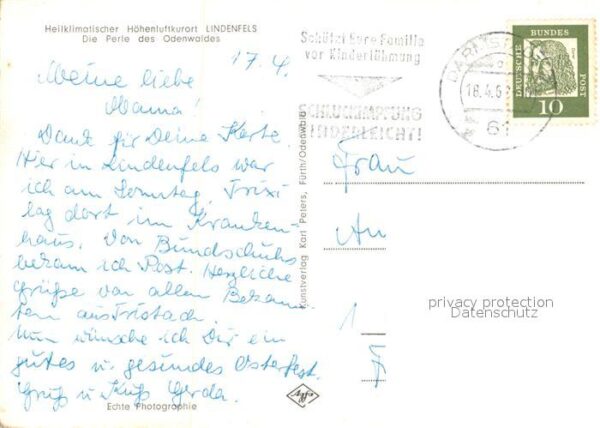 Heilklimatischer Höhenluftkurort LINDENFELS
Die Perle des Odenwaldes
17.4.
Meine liebe
Mama!
Dank für Deine Karte.
Hier in Lindenfels war
ich am Sonntag, Trixi
lag dort im Kranken-
haus. Von Bundschuhs
bekam ich Post. Herzliche
Grüße von allen Bekann-
ten aus
Nun wünsche ich Dir ein
gutes u. gesundes Osterfest.
Gruß u Kuß Gerda.
Echte Photographie
Kunstverlag Karl Peters, Fürth/Odenwald
Agfa
Schützt Eure Familie
vor Kinderlähmung
SCHLUCKIMPFUNG
KINDERLEICHT!
18.4.6
61
DEUTSCHE BUNDES POST
10
Frau
An
1
privacy protection
Datenschutz